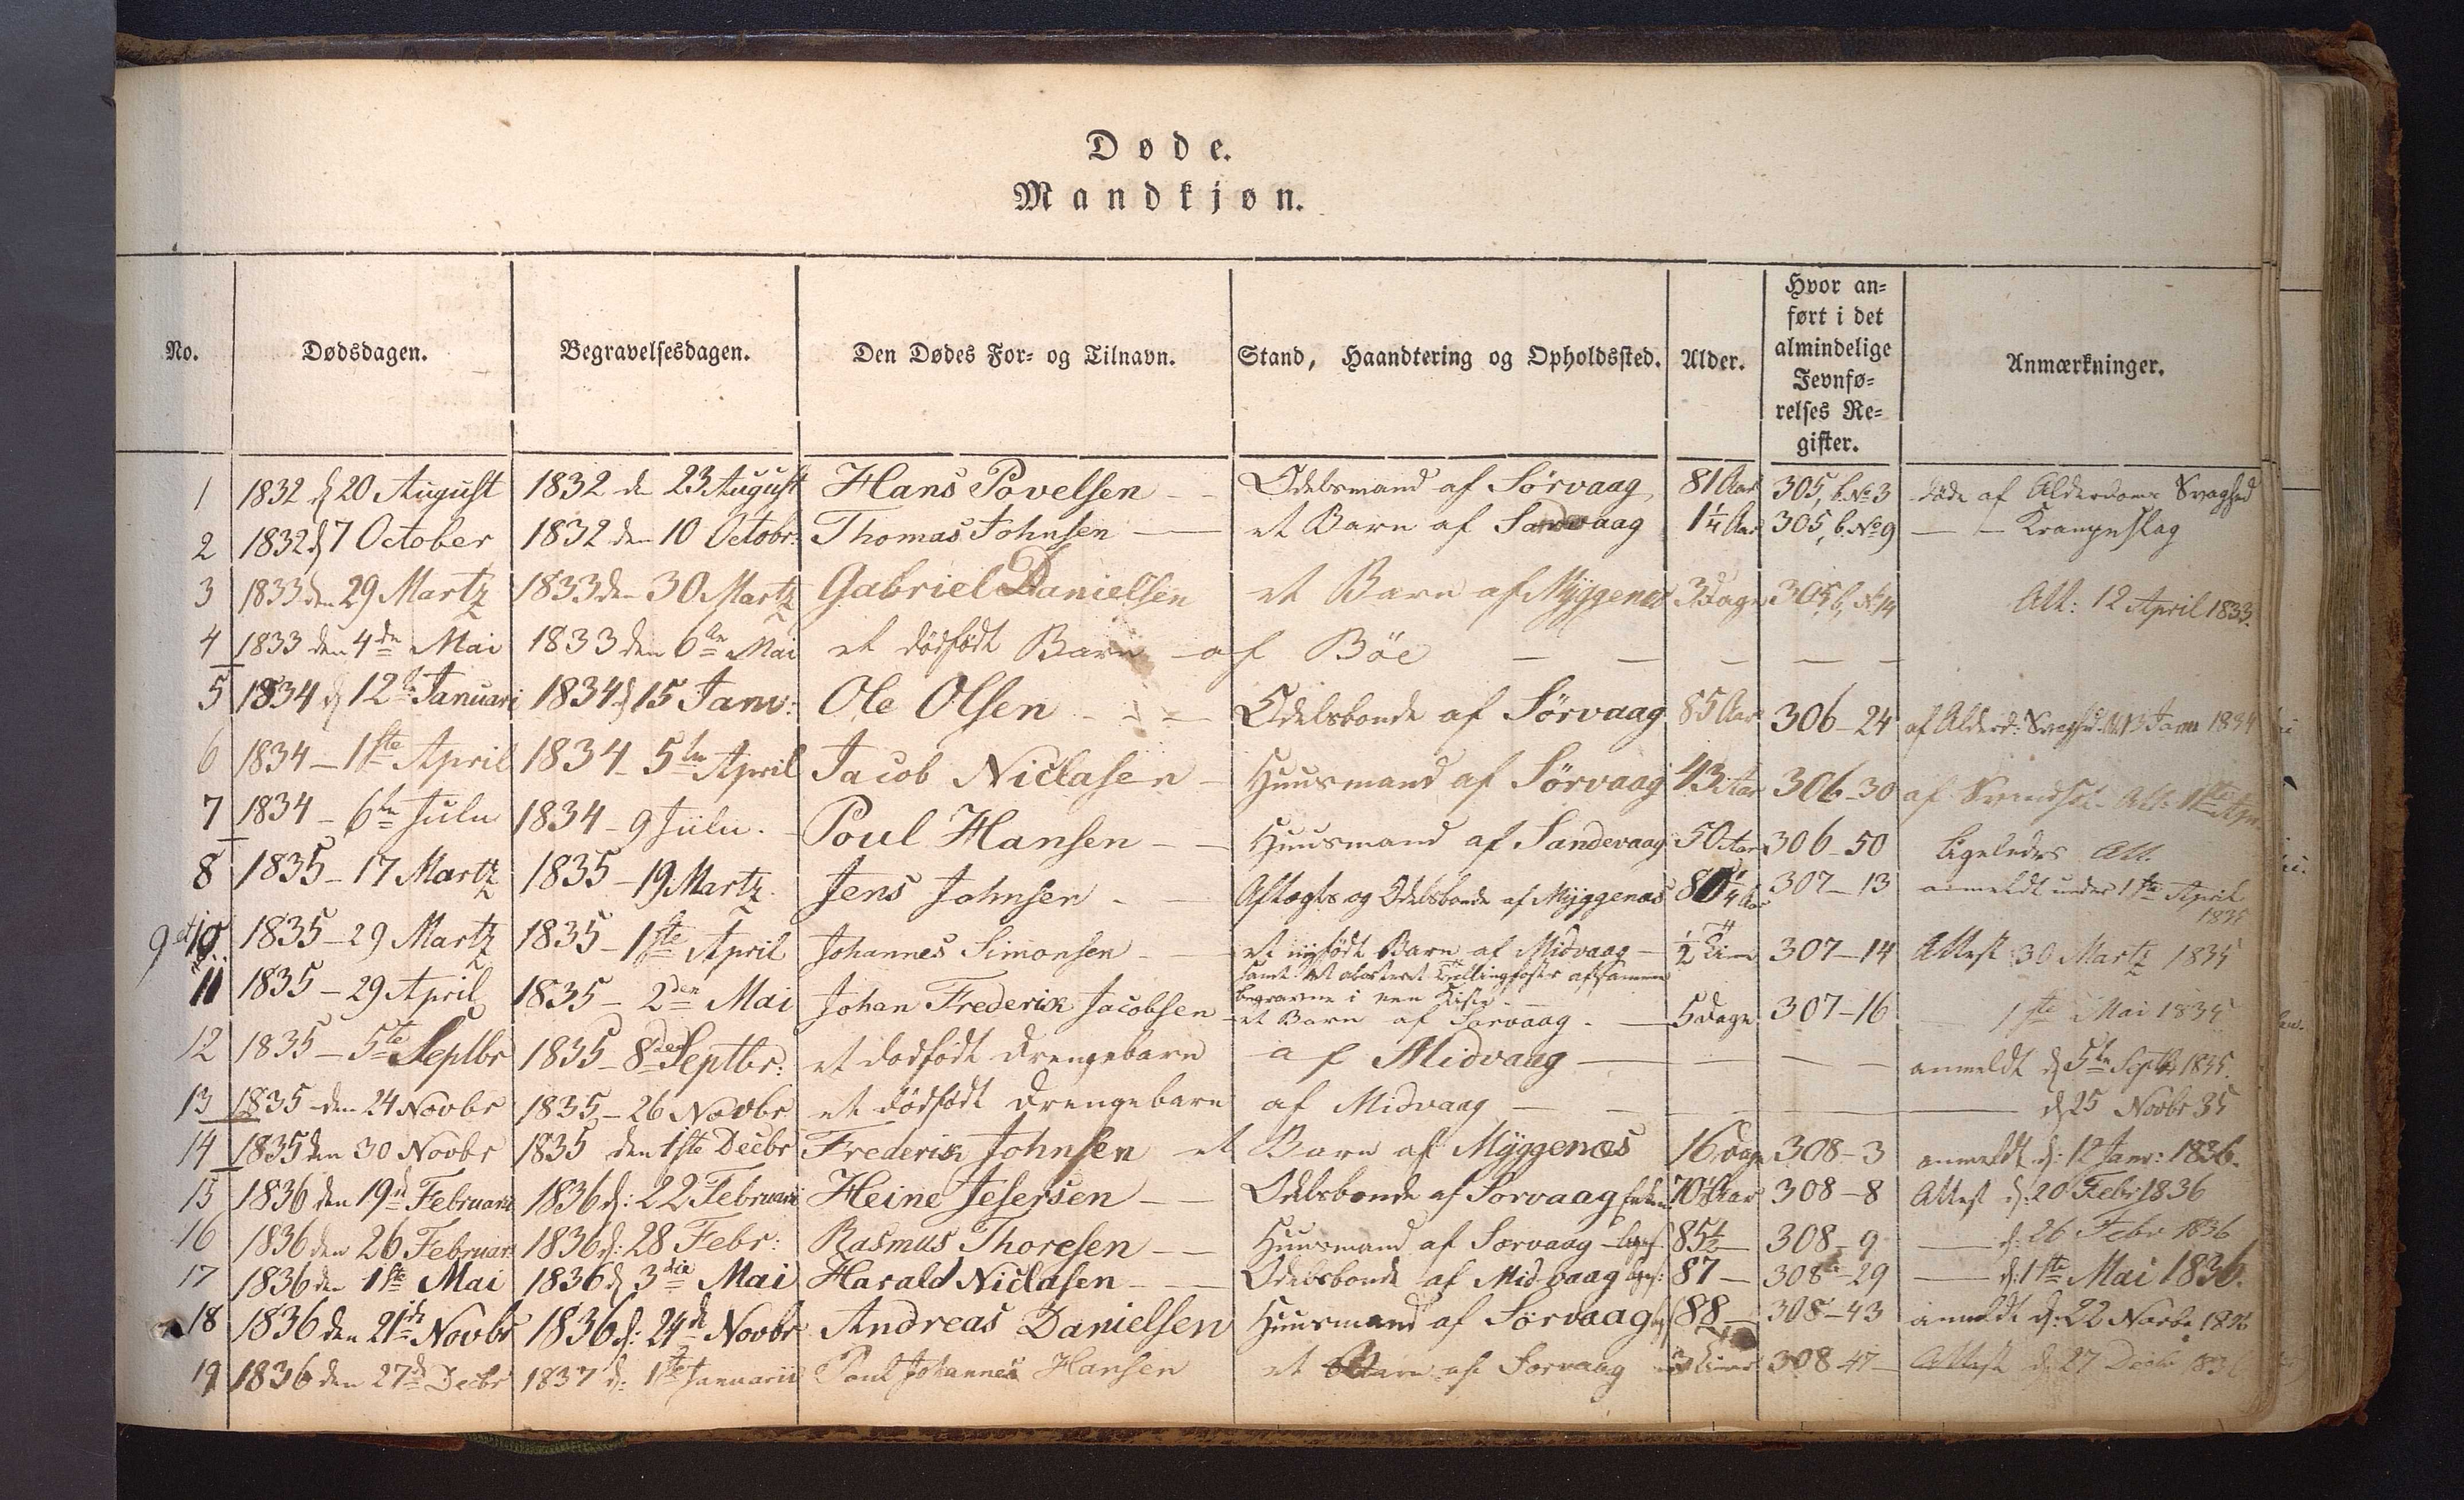 Døde.
Mandkjøn.
No. Dødsdagen. Begravelsesdagen. Den Dødes For- og Tilnavn. Stand, Haandtering og Opholdssted. Alder. Hvor an=ført i det almindelige Jevnfø=relses Re=gister. Anmærkninger.
1 1832 d 20 August 1832 de 23 August Hans Povelsen Odelsmand af Sörvaag 81 Aar 305, b. No 3 döde af Alderdoms Svaghed
2 1832 d 7 October 1832 den 10 Octobr: Thomas Johnsen et Barn af Sandvaag 1 1/4 Aar 305, b. No 9 Krampeslag
3 1833 den 29 Martz 1833 den 30 Martz Gabriel Danielsen et Barn af Myggenes 3 Dage 305, b, No 14 Att: 12 April 1833.
4 1833 den 4de Mai 1833 den 6te Mai et dödfödt Barn af Böe
5 1834 d 12te Januari 1834 d 15 Janv: Ole Olsen Odelsbonde af Sörvaag 85 Aar 306-24 af Alderd: Svaghed 13 Janv 1834
6 1834 - 1ste April 1834 - 5te April Jacob Niclasen Huusmand af Sörvaag 43 Aar 306-30 af
7 1834 - 6te Julii 1834 - 9 Julii. Poul Hansen Huusmand af Sandevaag 50 Aar 306-50 ligeledes Att.
8 1835 - 17 Martz 1835 - 19 Martz. Jens Johnsen Aftægts og Odelsbonde af Myggenæs 307-13 anmeldt under 1ste April 1835
9 et 10 1835 - 29 Martz 1835 - 1ste April Johannes Simonsen et nyfödt Barn af Midvaag - 1/2 Time 307-14 Attest 30 Martz 1835
samt et aborteret Tvillingfoster afsammen
begravne i een Kiste.
11 1835 - 29 April 1835 - 2den Mai Johan Frederik Jacobsen et Barn af Sørvaag. 5 dage 307-16 1ste Mai 1835
12 1835 - 5te Septbr 1835 - 8de Septbr: et dødfødt drengebarn af Midvaag anmeldt d 5te Septb 1835.
13 1835 - den 24 Novbr 1835 - 26 Novbr et dödfödt drengebarn af Midvaag d 25 Novbr 35
14 1835 den 30 Novbr 1835 den 1ste Decbr Frederik Johnsen et Barn af Myggenæs 16 dage 308-3 anmeldt d: 12 Janv: 1836.
15 1836 den 19de Februarii 1836 d: 22 Februarii Heine Jesersen Odelsbonde af Sorvaag 70 Aar 308-8 Attest d: 20 Febr 1836
16 1836 den 26 Februar 1836 d: 28 Febr: Rasmus Thoresen Huusmand af Sørvaag 85 1/2 308-9 d: 26 Febr 1836
17 1836 den 1ste Mai 1836 d 3die Mai Harald Niclasen Odelsbonde af Midvaag 87 308-29 d: 1ste Mai 1836.
18 1836 den 21de Novbr 1836 d: 24de Novbr Andreas Danielsen Huusmand af Sörvaag 88 308-43 anmeldt d: 22 Novbr 1836
19 1836 den 27de Decbr 1837 d: 1ste Januarii Poul Johannes Hansen et Barn af Sorvaag 308-47 Attest d 27 Decbr